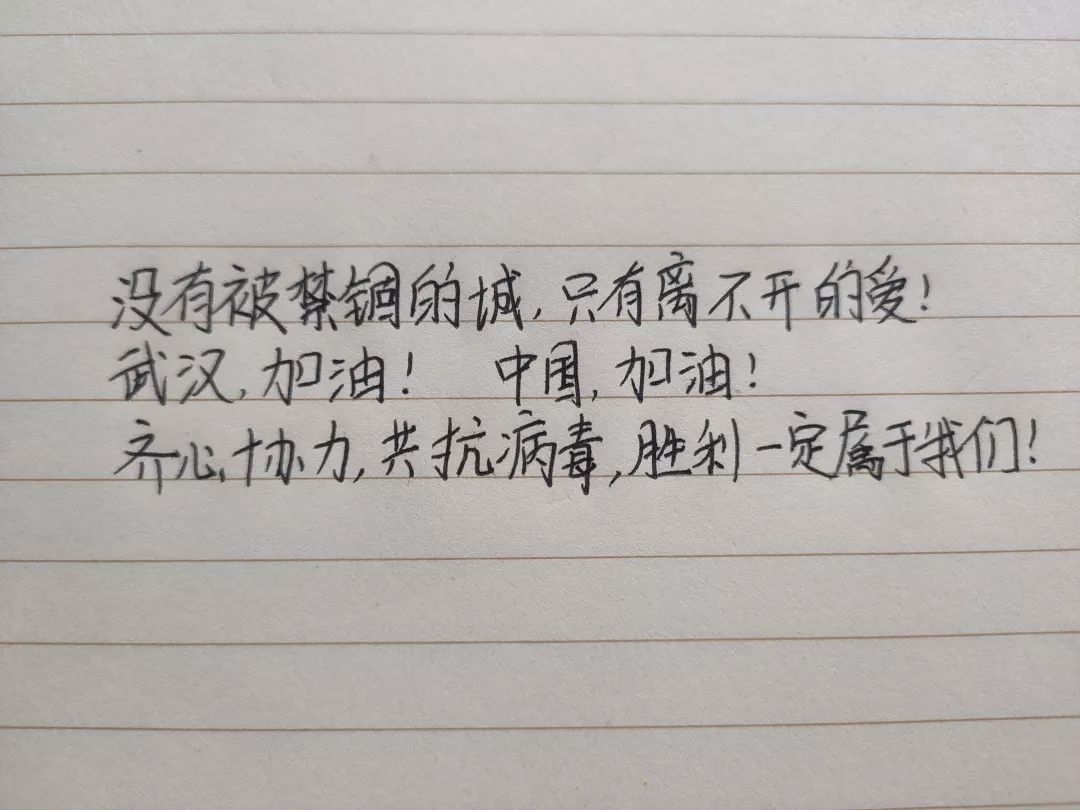 没有被禁锢的城,只有离不开的爱!
武汉,加油! 中国,加油!
齐心协力,共抗病毒,胜利一定属于我们!